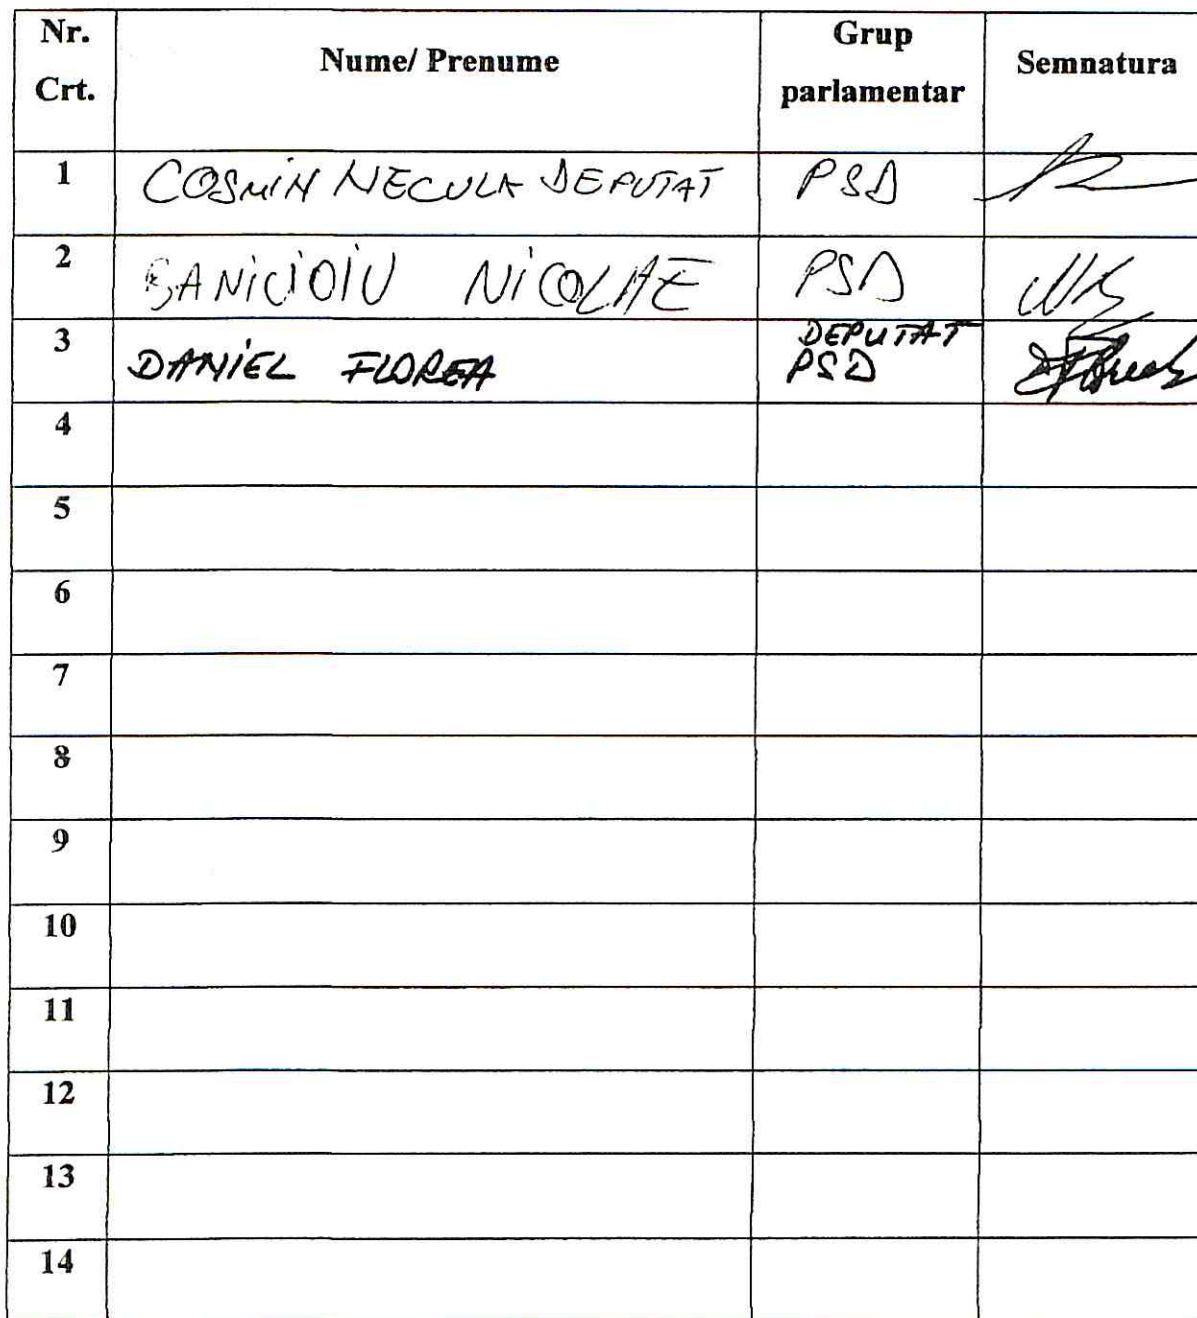 Nr. Crt. Nume/ Prenume Grup parlamentar Semnatura
1 COSMIN NECULA DEPUTAT PSD
2 BANICIOIU NICOLAE PSD
3 DANIEL FLOREA DEPUTAT PSD
4
5
6
7
8
9
10
11
12
13
14